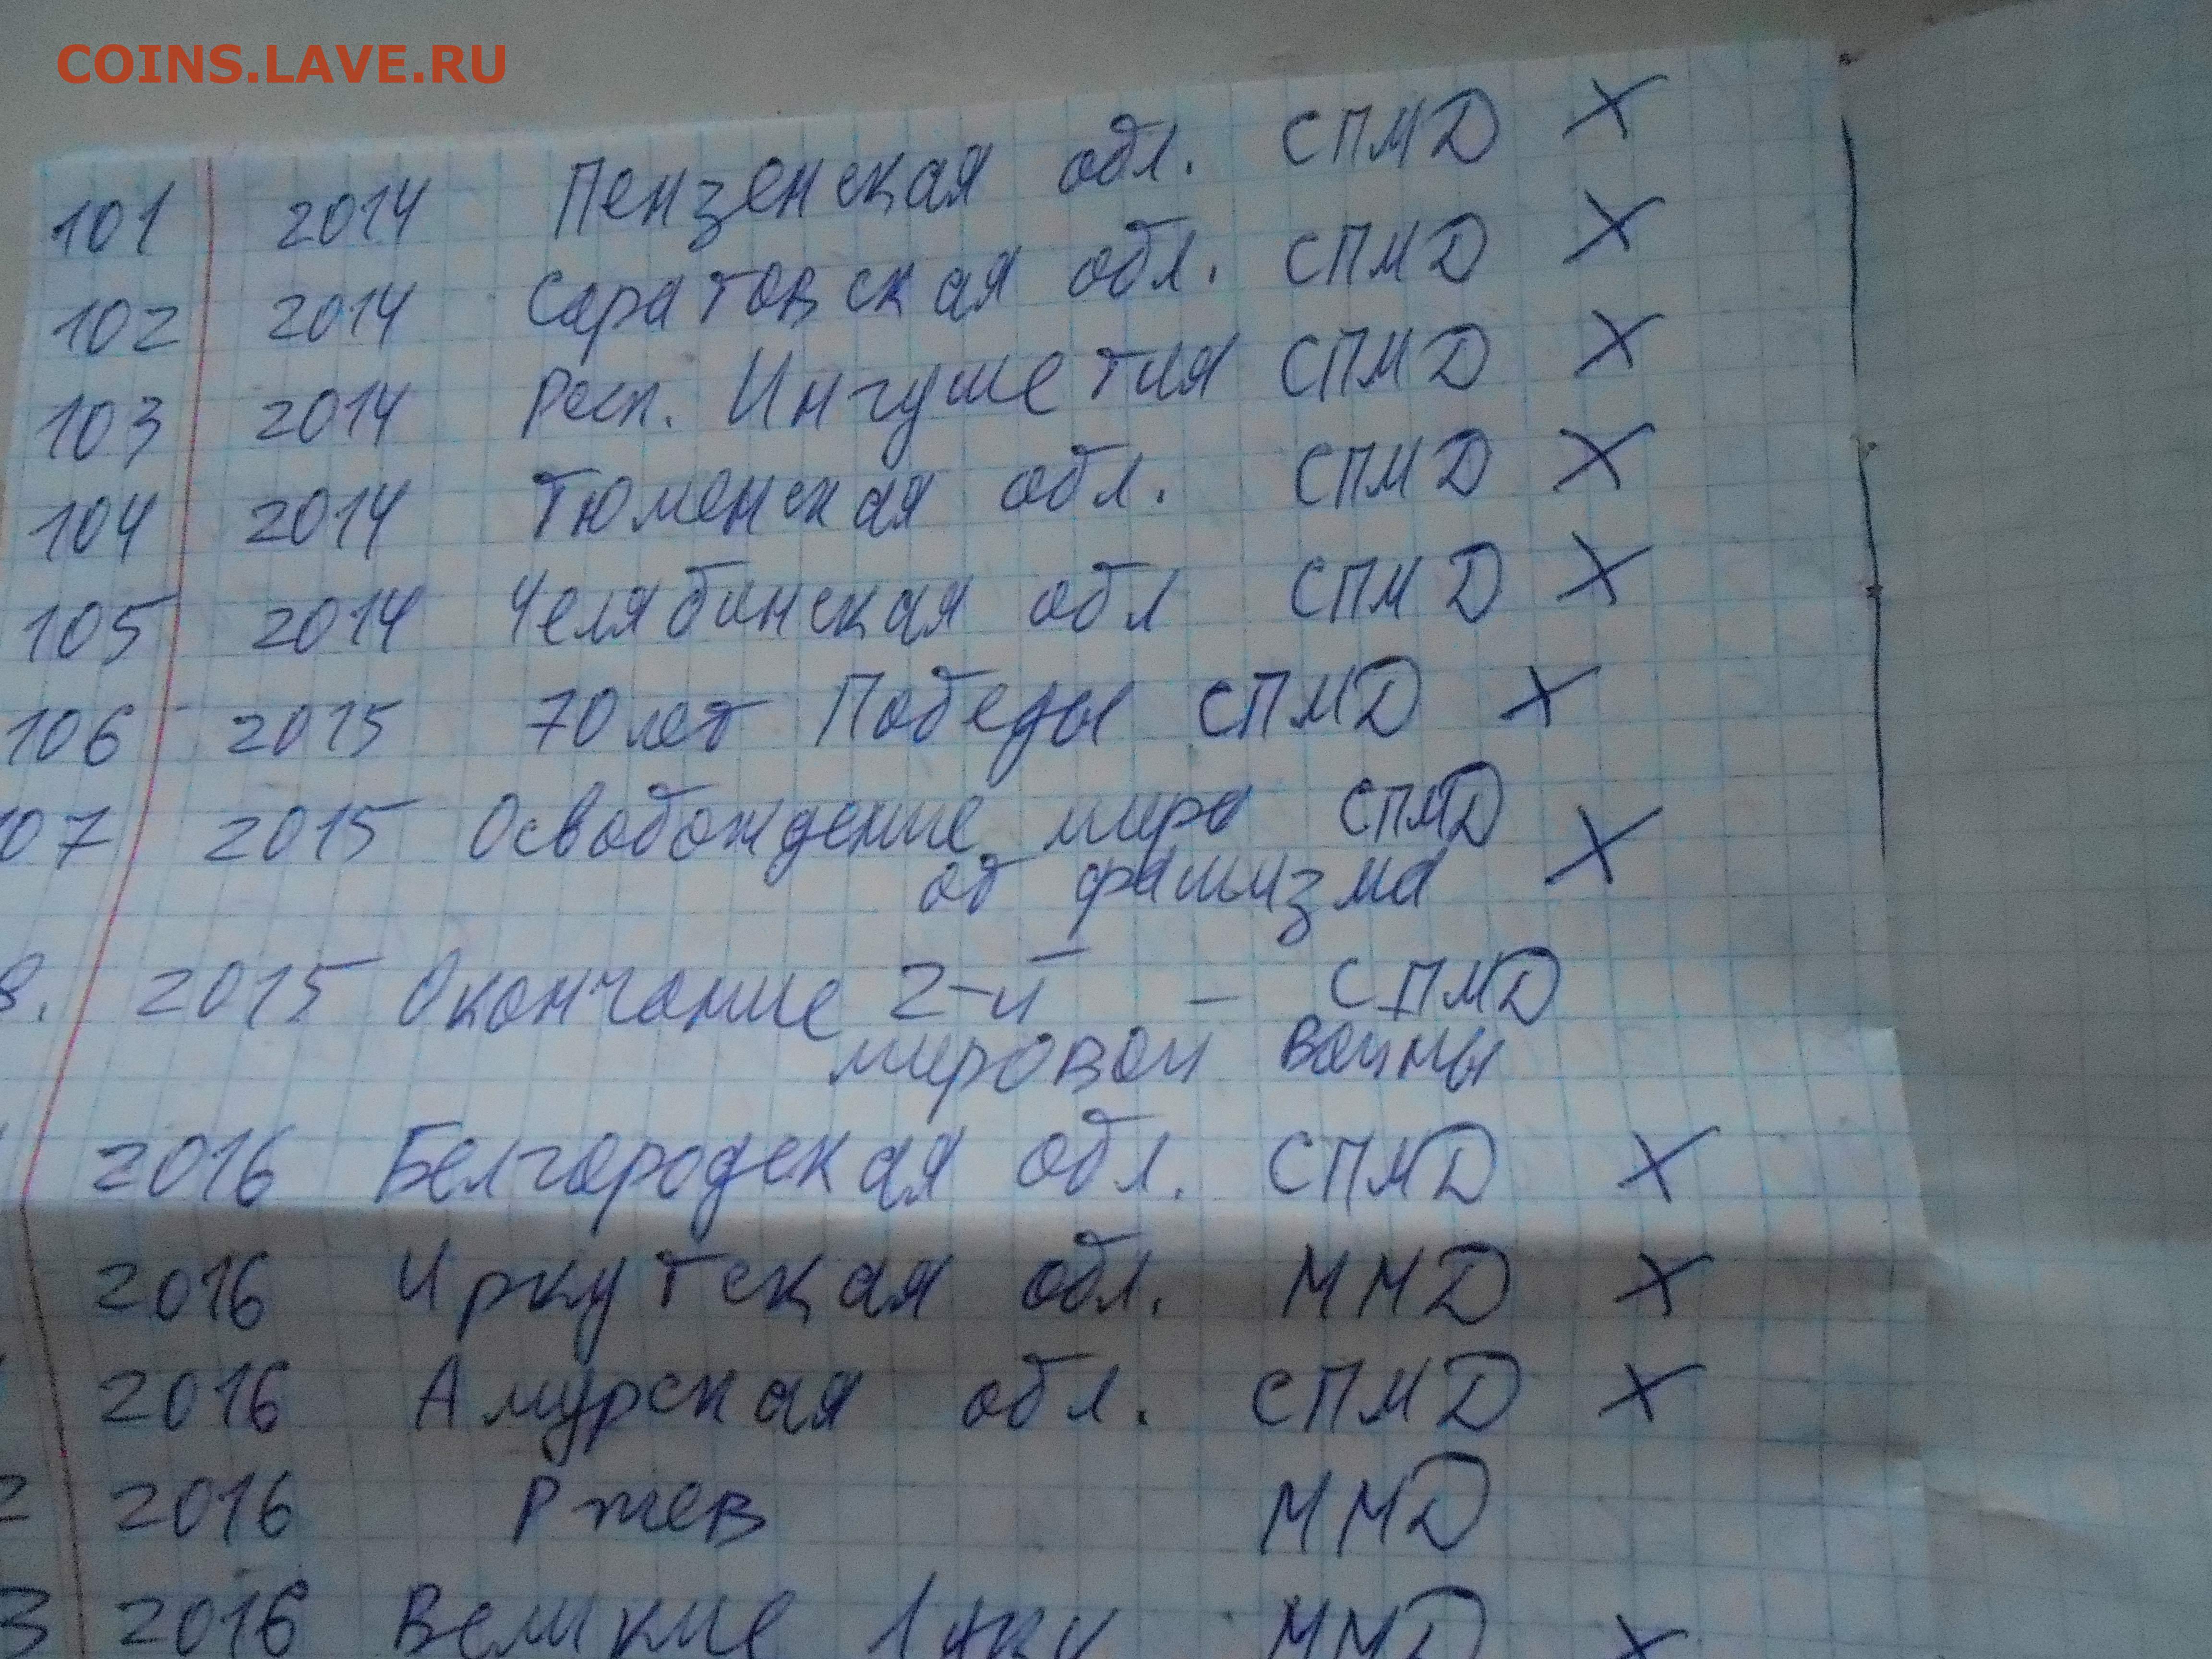 COINS.LAVE.RU
101 2014 Пензенская обл. СПМД X
102 2014 Саратовская обл. СПМД X
103 2014 Респ. Ингушетия СПМД X
104 2014 Тюменская обл. СПМД X
105 2014 Челябинская обл СПМД X
106 2015 70 лет Победы СПМД X
107 2015 Освобождение мира СПМД X
от фашизма
8. 2015 Окончание 2-й - СПМД
мировой войны
2016 Белгородская обл. СПМД X
2016 Иркутская обл. ММД X
2016 Амурская обл. СПМД X
2 2016 Ржев ММД
3 2016 Великие Луки ММД X